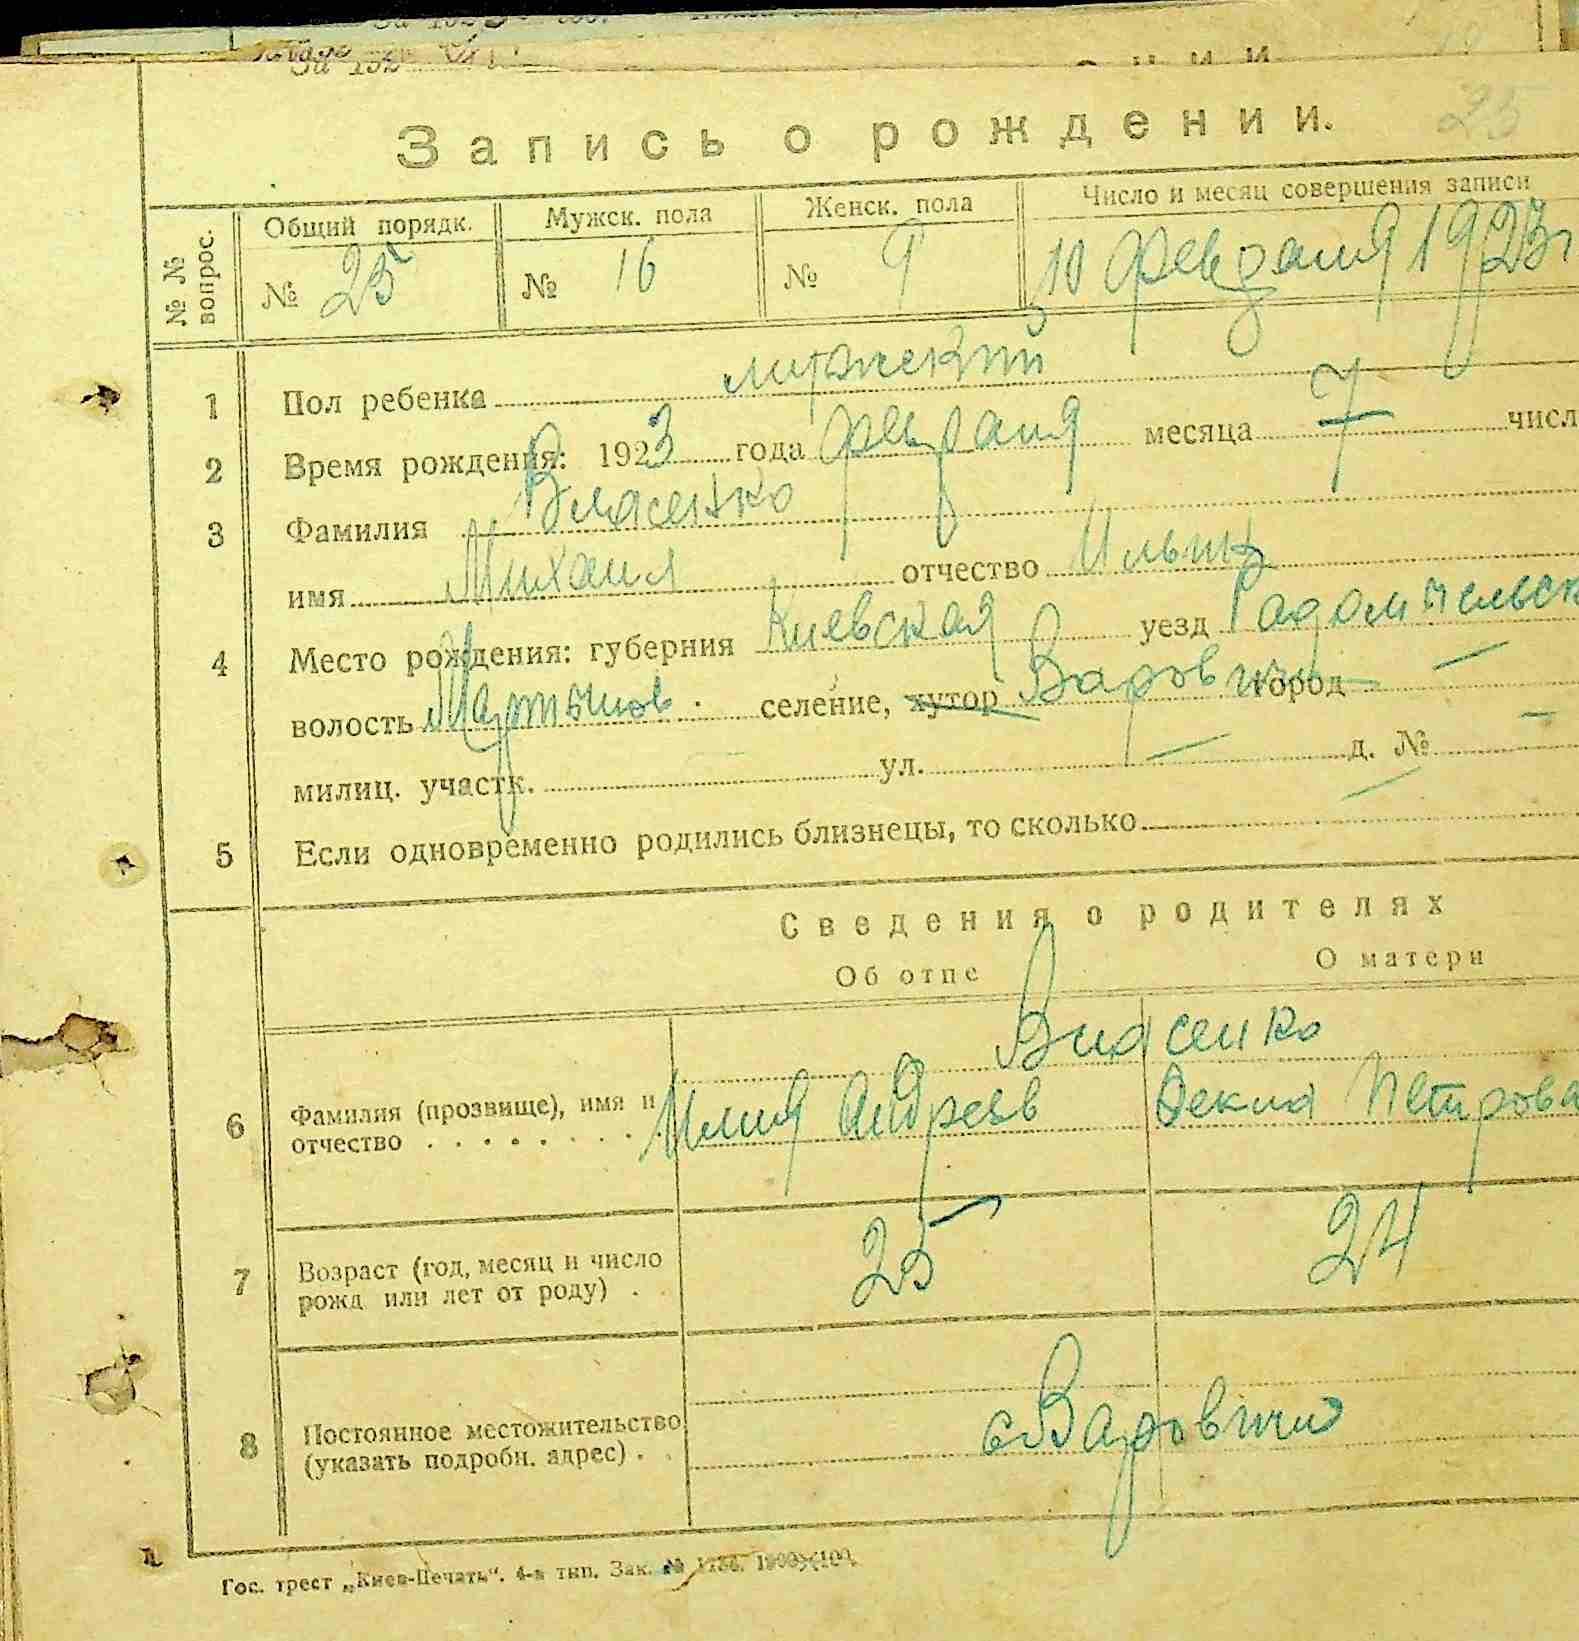 25
Запись о рождении.
№ № вопрос.
Общий порядк.
Мужск. пола
Женск. пола
Число и месяц совершения записи
№ 25
№ 16
№ 9
10 февраля 1923 г
1 Пол ребенка мужский
2 Время рождения: 1923 года февраля месяца 7 числ
3 Фамилия Власенко
имя Михаил отчество Ильич
4 Место рождения: губерния Киевская уезд Радомысльск
волость Мартынов. селение, хутор Варовичи город —
милиц. участк. ул. — д. № —
5 Если одновременно родились близнецы, то сколько —
Сведения о родителях
Об отце
О матери
Власенко
6 Фамилия (прозвище), имя и отчество
Илия Андреев
Фекла Петрова
7 Возраст (год, месяц и число рожд или лет от роду) .
25
24
8 Постоянное местожительство (указать подробн. адрес) .
с Варовичи
Гос. трест „Киев-Печать“. 4-я тип. Зак. №